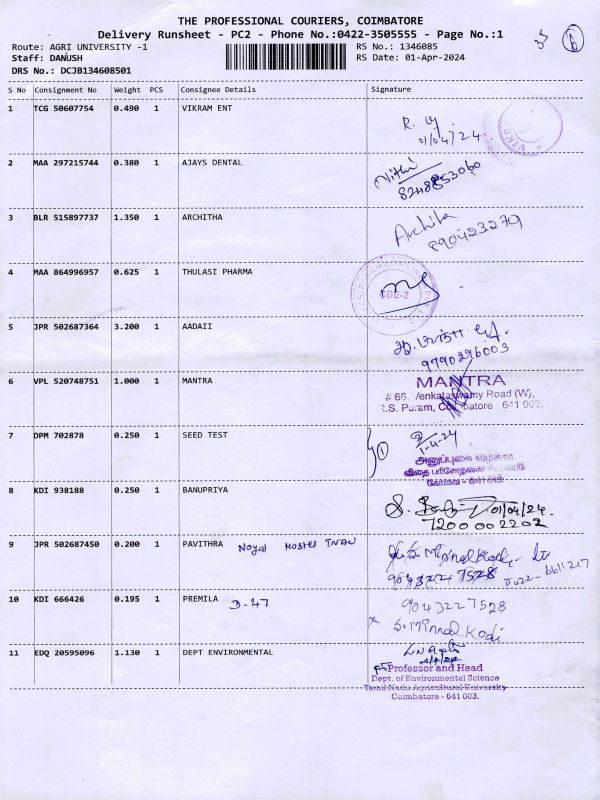 THE PROFESSIONAL COURIERS, COIMBATORE
Delivery Runsheet - PC2 - Phone No.:0422-3505555 - Page No.:1
Route: AGRI UNIVERSITY -1
RS No.: 1346085
Staff: DANUSH
RS Date: 01-Apr-2024
DRS No.: DCJB134608501
S No Consignment No Weight PCS Consignee Details Signature
1 TCG 50607754 0.490 1 VIKRAM ENT
01/04/24
2 MAA 297215744 0.380 1 AJAYS DENTAL
Nithi
3 BLR 515897737 1.350 1 ARCHITHA
Archita
8904232279
4 MAA 864996957 0.625 1 THULASI PHARMA
5 JPR 502687364 3.200 1 AADAII
9790296003
6 VPL 520748751 1.000 1 MANTRA
MANTRA
# 66, Venkataswamy Road (W),
R.S. Puram, Coimbatore - 641 002.
7 DPM 702878 0.250 1 SEED TEST
1-4-24
8 KDI 938188 0.250 1 BANUPRIYA
01/04/24.
7200002202
9 JPR 502687450 0.200 1 PAVITHRA Noyal Hostel TNAU
10 KDI 666426 0.195 1 PREMILA D-47
9043227528
S. Minnal Kodi
11 EDQ 20595096 1.130 1 DEPT ENVIRONMENTAL
Professor and Head
Dept. of Environmental Science
Tamil Nadu Agricultural University
Coimbatore - 641 003.